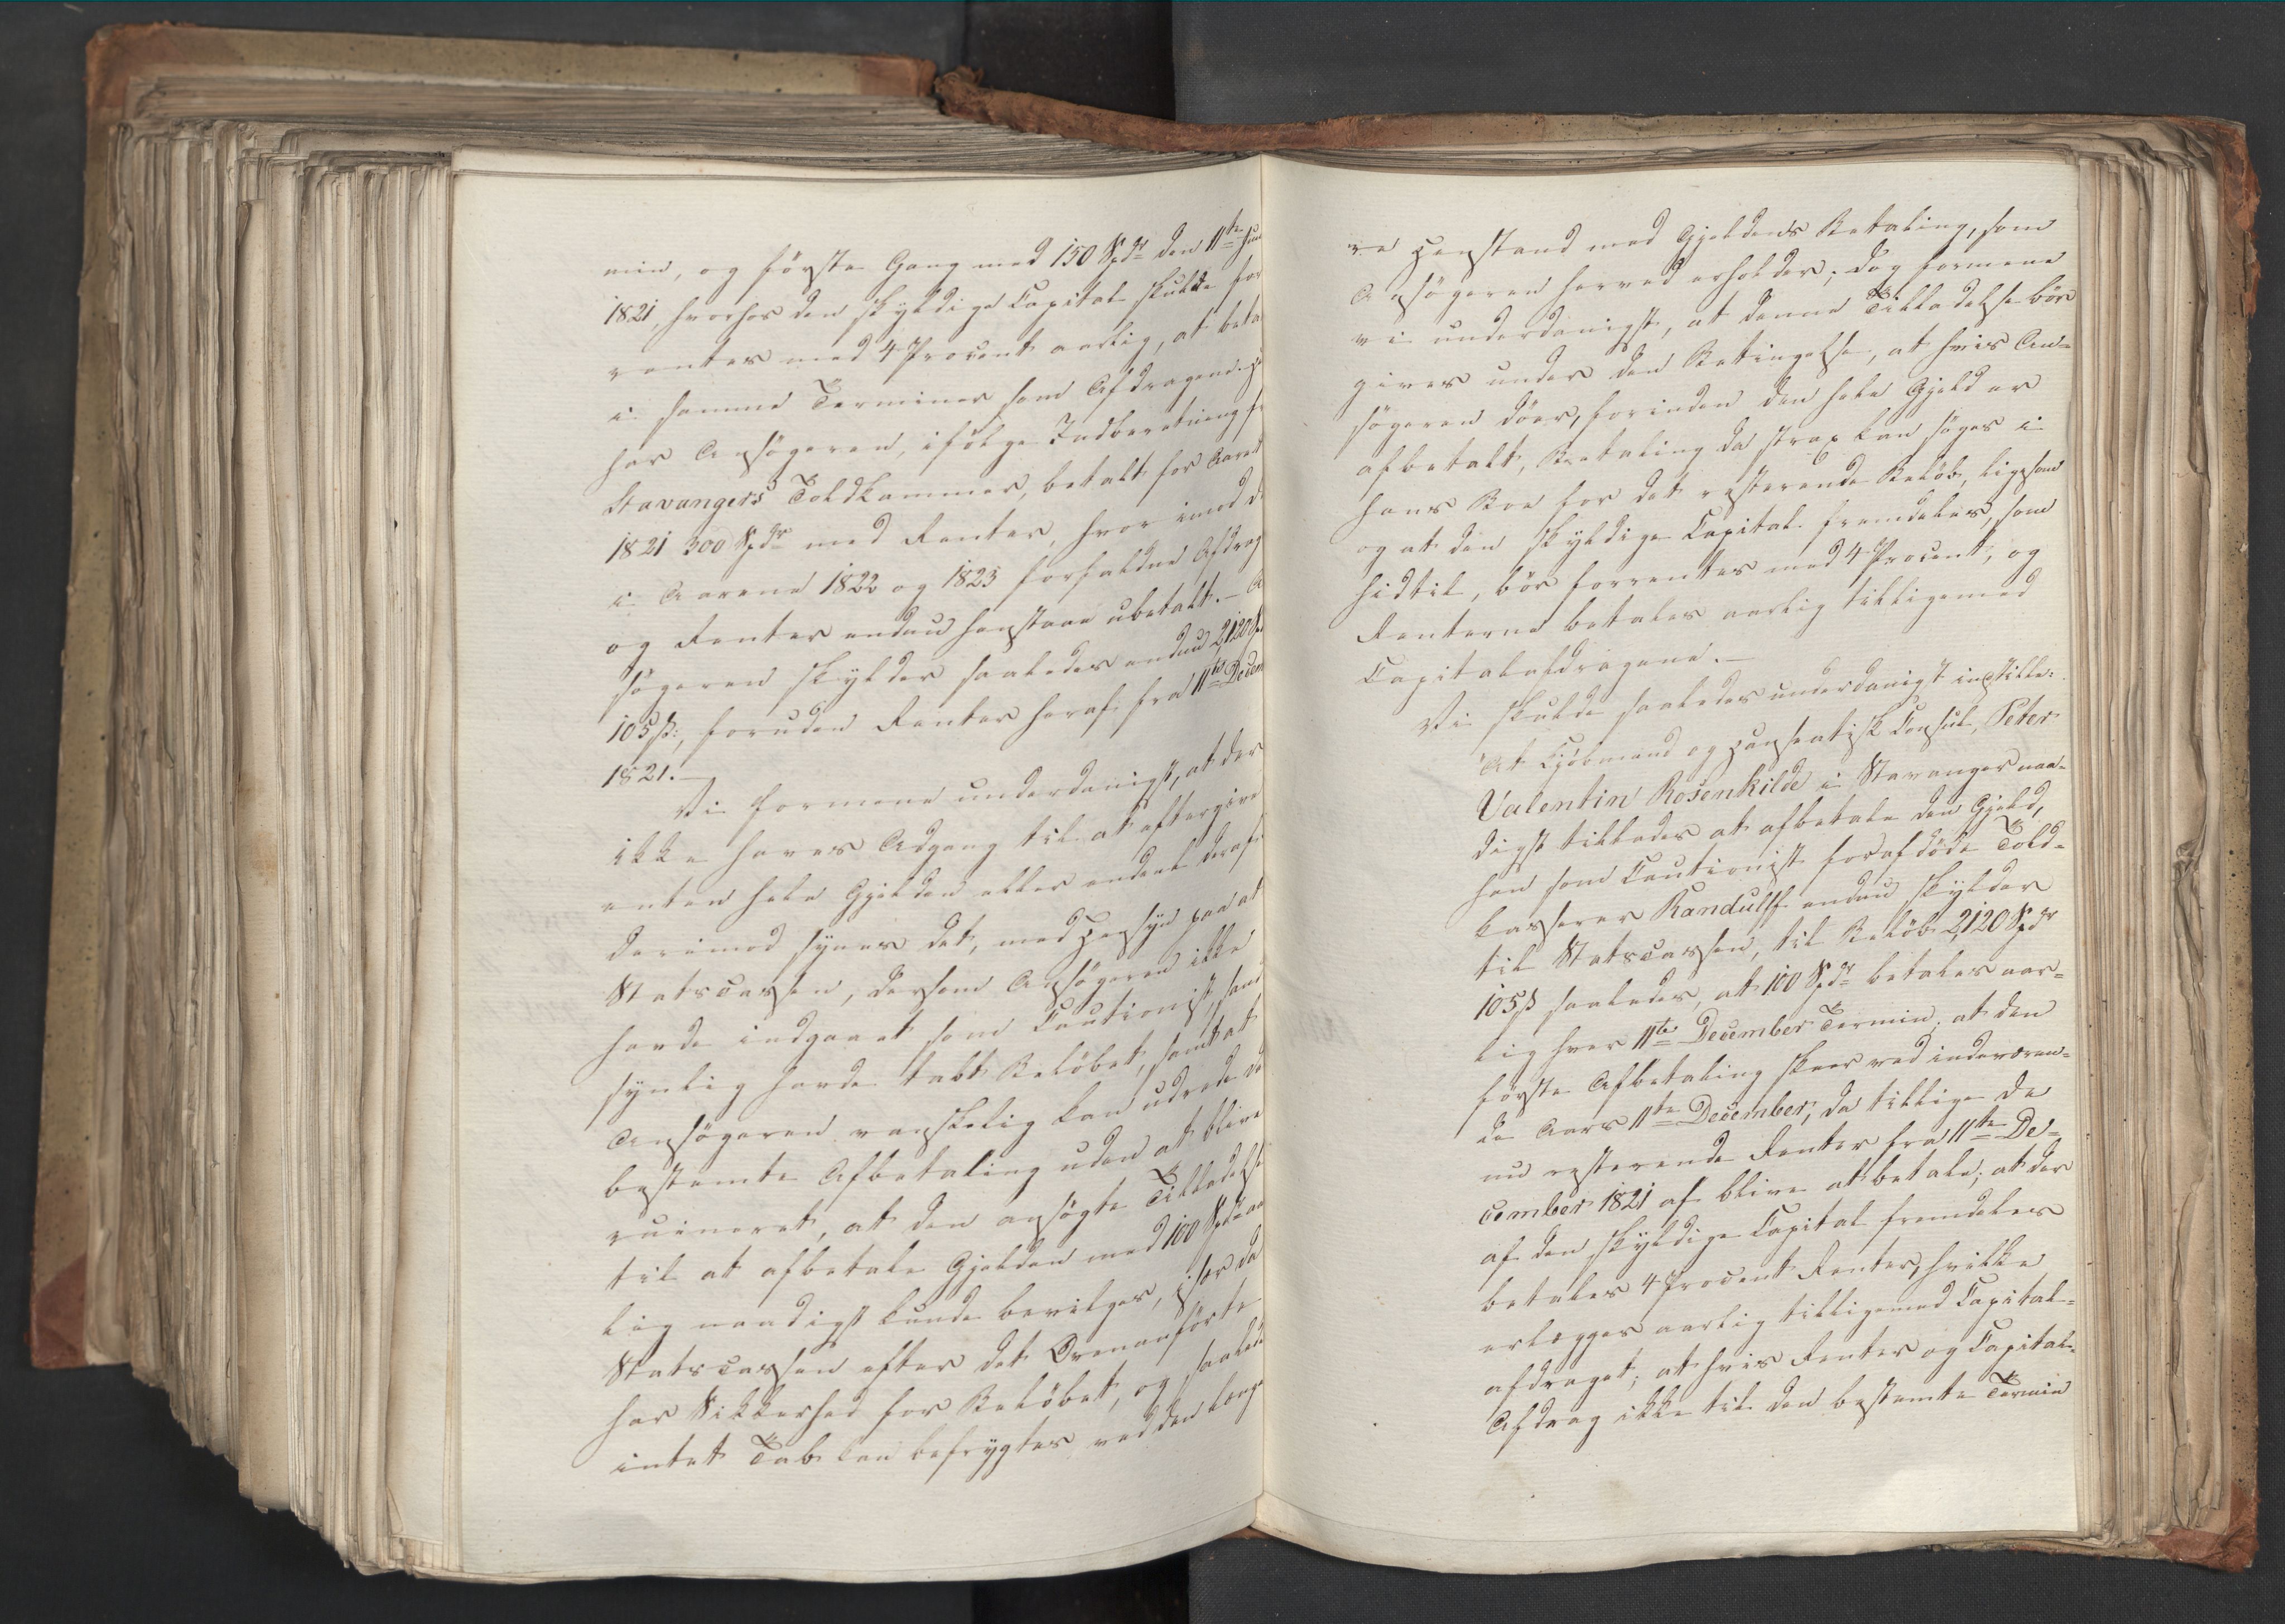 min, og første Gang med 150 Spdr den 11te Jun
1821, hvorhos den skyldige Capital skulde for
rentes med 4 Procent aarlig, at beta
i samme Terminer som Afdragene.
har Ansøgeren, ifølge Indberetning fr
Stavangers Toldkammer, betalt for Aaret
1821 300 Spdr med Renter, hvor imod d
i Aarene 1822 og 1823 forfaldne Afdrag
og Renter endnu henstaae ubetalt. — A
søgeren skylder saaledes endnu 2,120 Sp
105 ß:, foruden Renter heraf fra 11te Decem
1821. —
Vi formene underdanigst, at der
ikke haves Adgang til at eftergive
enten hele Gjelden eller endeel deraf
derimod synes det, med Hensyn paa at
Statscassen, dersom Ansøgeren ikke
havde indgaaet som Cautionist, sand
synlig havde tabt Beløbet, samt at
Ansøgeren vanskelig kan udrede de
bestemte Afbetaling uden at blive
ruineret, at den ansøgte Tilladelse
til at afbetale Gjelden med 100 Spdr aar
lig naadigst kunde bevilges, især da
Statscassen efter det Ovenanførte
har Sikkerhed for Beløbet, og saalede
intet Tab kan befrygtes ved den længe
re Henstand med Gjeldens Betaling, som
Ansøgeren herved erholder; dog formene
vi underdanigst, at denne Tilladelse bør
gives under den Betingelse, at hvis An-
søgeren døer, forinden den hele Gjeld er
afbetalt, Betaling da strax kan søges i
hans Boe for det resterende Beløb, ligesom
og at den skyldige Capital fremdeles, som
hidtil, bør forrentes med 4 Procent, og
Renterne betales aarlig tilligemed
Capitalafdragene. —
Vi skulde saaledes underdanigst indstille:
At Kjøbmand og hanseatisk Consul, Peter
Valentin Rosenkilde i Stavanger naa-
digst tillades at afbetale den Gjeld,
han som Cautionist for afdøde Told-
kasserer Randulff endnu skylder
til Statscassen, til Beløb 2,120 Spdr
105 ß saaledes, at 100 Spdr betales aar-
lig hver 11te December Termin; at den
første Afbetaling skeer ved indeværen-
de Aars 11te December, da tillige de
nu resterende Renter fra 11te De-
cember 1821 af blive at betale; at der
af den skyldige Capital fremdeles
betales 4 Procent Renter, hvilke
erlægges aarlig tilligemed Capital-
afdraget; at hvis Renter og Capital-
Afdrag ikke til den bestemte Termin